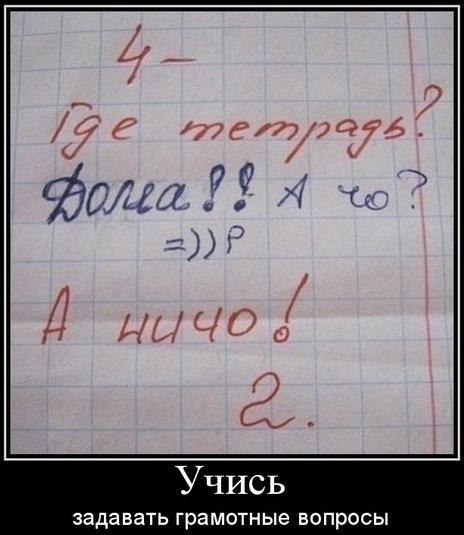 4-
Где тетрадь?
Дома!! А чо?
=))P
А ничо!
2.
Учись
задавать грамотные вопросы